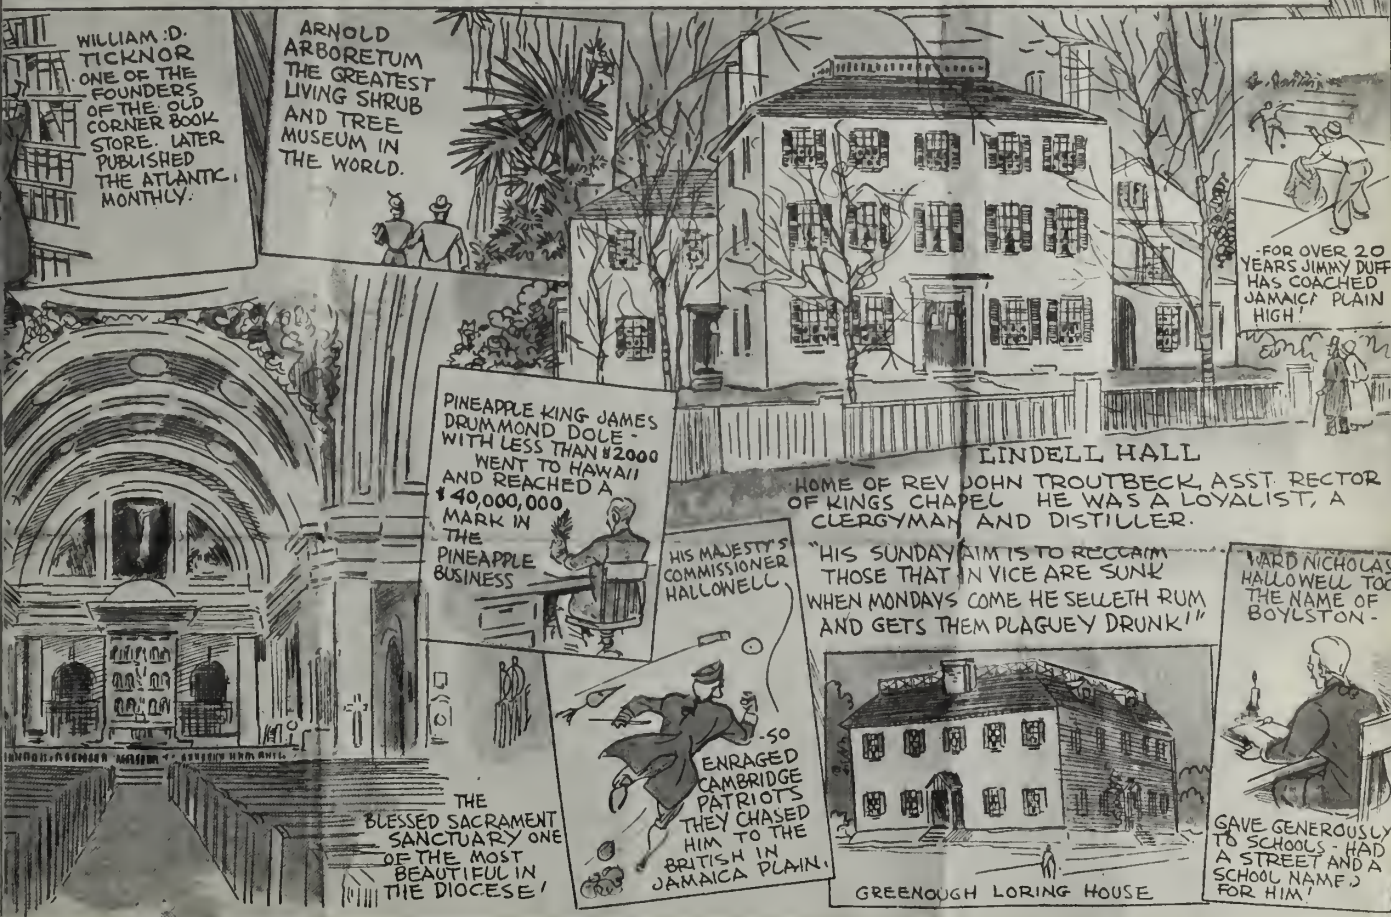 WILLIAM D.
TICKNOR
ONE OF THE
FOUNDERS
OF THE OLD
CORNER BOOK
STORE. LATER
PUBLISHED
THE ATLANTIC
MONTHLY.
ARNOLD
ARBORETUM
THE GREATEST
LIVING SHRUB
AND TREE
MUSEUM IN
THE WORLD.
-FOR OVER 20
YEARS JIMMY DUFF
HAS COACHED
JAMAICA PLAIN
HIGH!
PINEAPPLE KING JAMES
DRUMMOND DOLE -
WITH LESS THAN $2000
WENT TO HAWAII
AND REACHED A
$40,000,000
MARK IN
THE
PINEAPPLE
BUSINESS
LINDELL HALL
HOME OF REV JOHN TROUTBECK, ASST. RECTOR
OF KINGS CHAPEL HE WAS A LOYALIST, A
CLERGYMAN AND DISTILLER.
"HIS SUNDAY AIM IS TO RECLAIM
THOSE THAT IN VICE ARE SUNK
WHEN MONDAYS COME HE SELLETH RUM
AND GETS THEM PLAGUEY DRUNK!"
HIS MAJESTY'S
COMMISSIONER
HALLOWELL
-SO
ENRAGED
CAMBRIDGE
PATRIOTS
THEY CHASED
HIM TO THE
BRITISH IN
JAMAICA PLAIN.
THE
BLESSED SACRAMENT
SANCTUARY ONE
OF THE MOST
BEAUTIFUL IN
THE DIOCESE!
GREENOUGH LORING HOUSE
WARD NICHOLAS
HALLOWELL TOO
THE NAME OF
BOYLSTON -
GAVE GENEROUSLY
TO SCHOOLS - HAD
A STREET AND A
SCHOOL NAMED
FOR HIM!